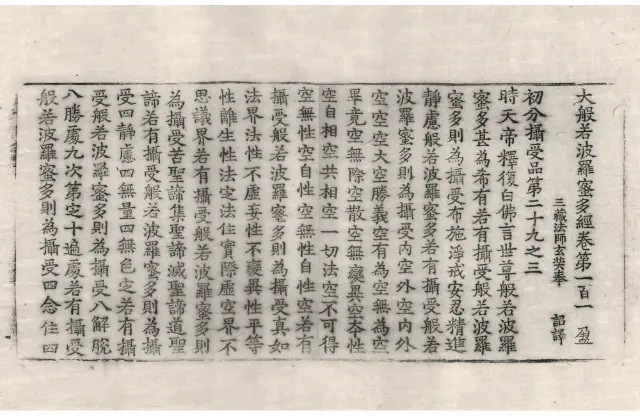 大般若波羅蜜多經卷第一百一 盈
三藏法師玄奘奉 詔譯
初分攝受品第二十九之三
時天帝釋復白佛言世尊般若波羅
蜜多甚為希有若有攝受般若波羅
蜜多則為攝受布施淨戒安忍精進
靜慮般若波羅蜜多若有攝受般若
波羅蜜多則為攝受內空外空內外
空空空大空勝義空有為空無為空
畢竟空無際空散空無變異空本性
空自相空共相空一切法空不可得
空無性空自性空無性自性空若有
攝受般若波羅蜜多則為攝受真如
法界法性不虛妄性不變異性平等
性離生性法定法住實際虛空界不
思議界若有攝受般若波羅蜜多則
為攝受苦聖諦集聖諦滅聖諦道聖
諦若有攝受般若波羅蜜多則為攝
受四靜慮四無量四無色定若有攝
受般若波羅蜜多則為攝受八解脫
八勝處九次第定十遍處若有攝受
般若波羅蜜多則為攝受四念住四